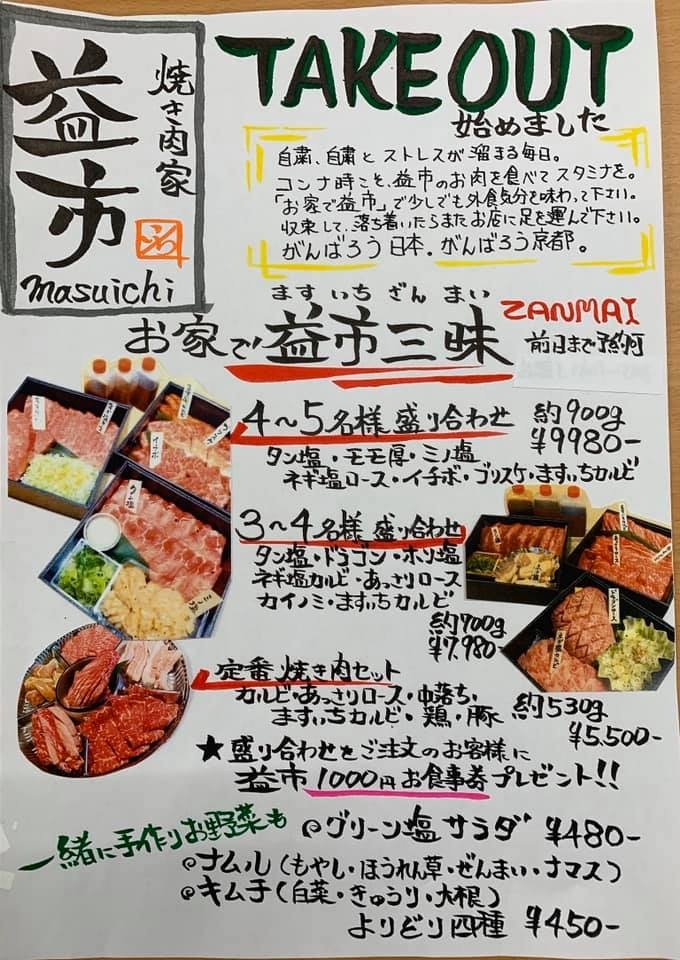 焼き肉家
益市
masuichi
TAKEOUT
始めました
自粛、自粛とストレスが溜まる毎日。
コンナ時こそ、益市のお肉を食べてスタミナを。
「お家で益市」で少しでも外食気分を味わって下さい。
収束して、落ち着いたらまたお店に足を運んで下さい。
がんばろう日本.がんばろう京都。
ますいちざんまい
ZANMAI
お家で益市三昧
前日まで予約可
4〜5名様 盛り合わせ 約900g
¥9980-
タン塩・モモ厚・ミノ塩
ネギ塩ロース・イチボ・ゴリスケ・ますいちカルビ
3〜4名様 盛り合わせ
タン塩・ドラゴン・ホソ塩
ネギ塩カルビ・あっさりロース
カイノミ・ますいちカルビ
約700g
¥7,980-
定番 焼き肉セット
カルビ・あっさりロース・中落ち・
ますいちカルビ・鶏・豚
約530g
¥5,500-
★盛り合わせをご注文のお客様に
益市 1000円お食事券プレゼント!!
一緒に手作りお野菜も
@グリーン塩サラダ ¥480-
@ナムル(もやし・ほうれん草・ぜんまい・ナマス)
@キムチ(白菜・きゅうり・大根)
よりどり四種 ¥450-